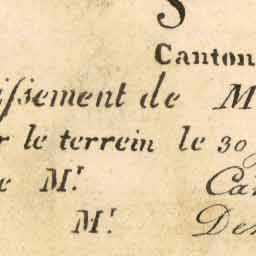 Canton
issement de M
r le terrein le 30
e Mr. Ca
Mr. Des